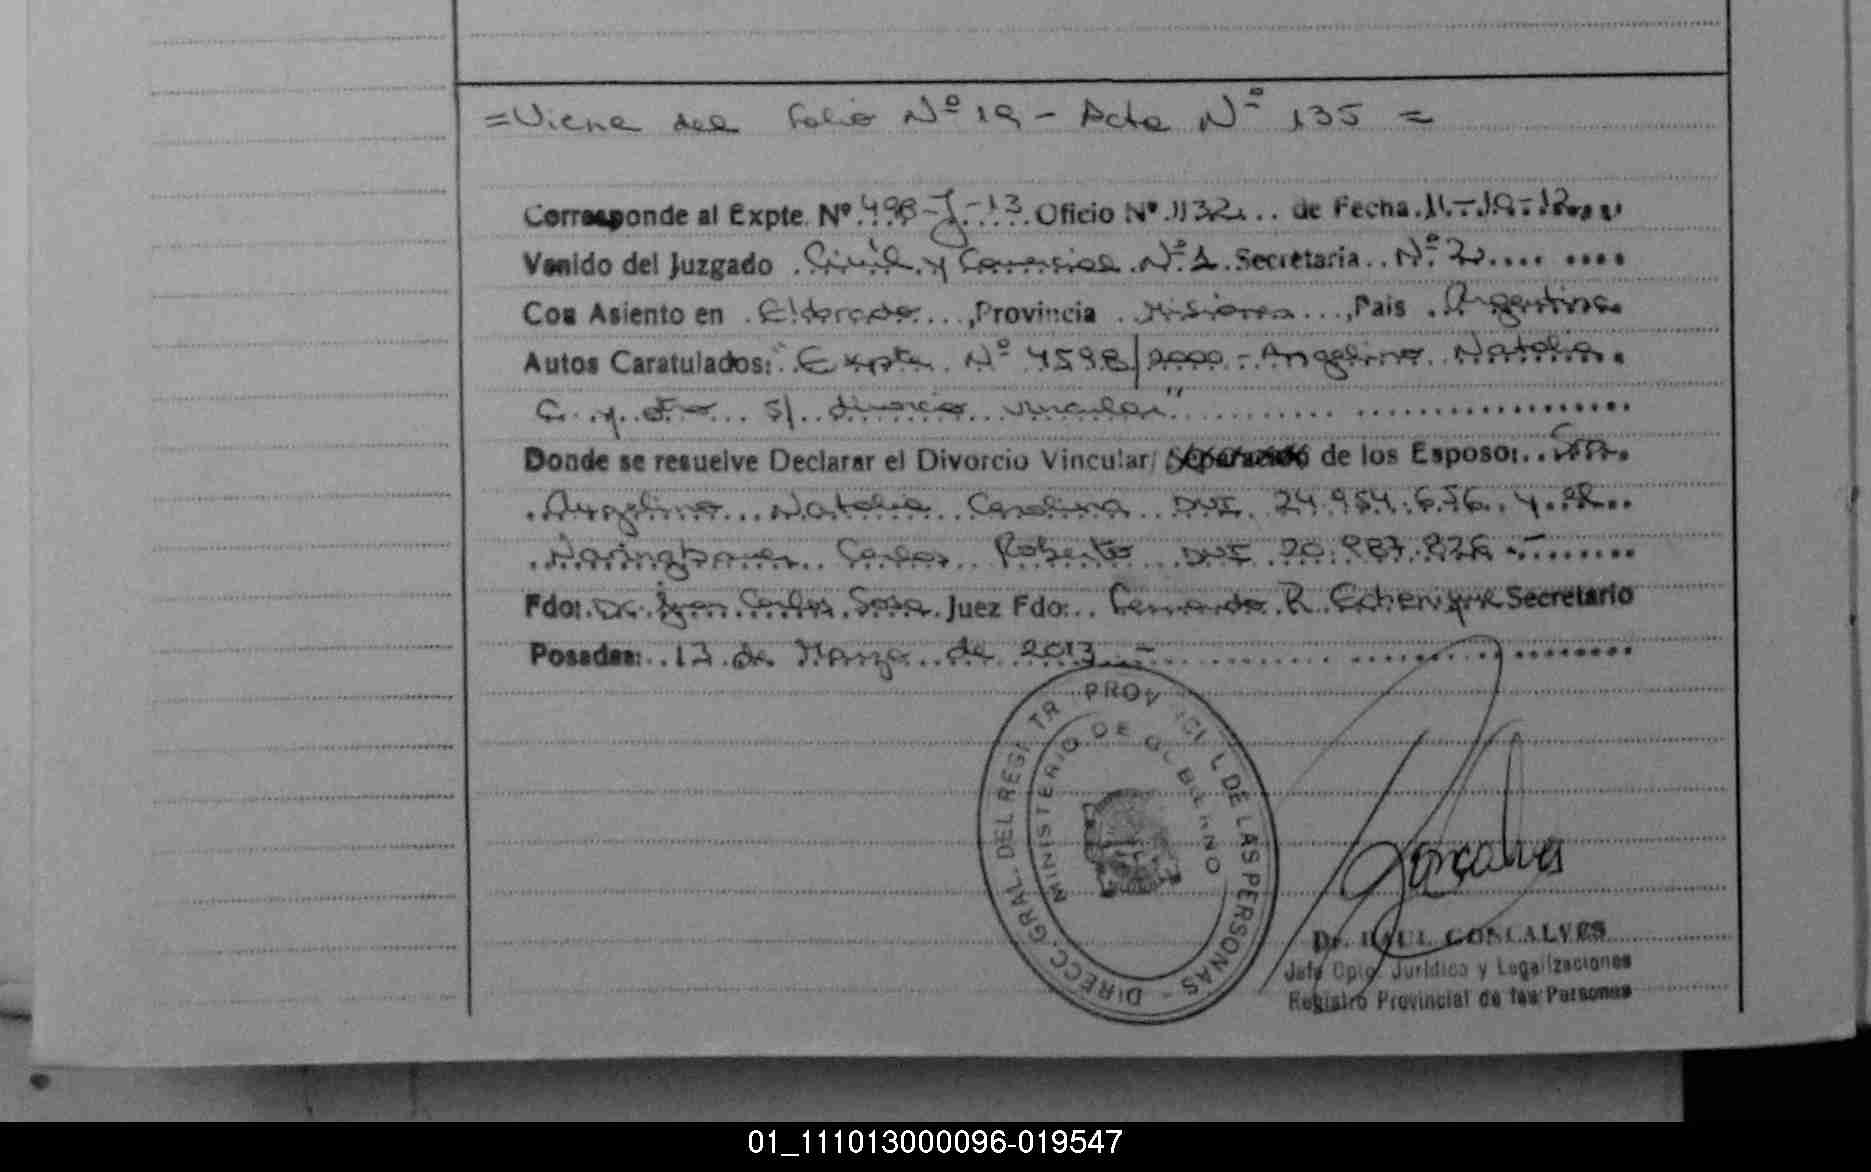 =Viene del folio Nº 19 - Acta Nº 135 =
Corresponde al Expte. Nº 498-J-13 Oficio Nº 1132 de Fecha 11-10-12
Venido del Juzgado Civil y Comercial Nº 1 Secretaria Nº 2
Con Asiento en Eldorado, Provincia Misiones, Pais Argentina
Autos Caratulados: "Expte Nº 4598/2000 - Angelino Natalia
C. y otro S/ divorcio vincular"
Donde se resuelve Declarar el Divorcio Vincular/ Separación de los Esposos: Sra.
Angelino Natalia Carolina DNI 24.954.656 y el
Carlos Roberto DNI 20.987.826 -
Fdo: Dr. Juan Carlos Sosa Juez Fdo: Fernando R. Secretario
Posadas: 13 de Marzo de 2013 -
DIRECC. GRAL. DEL REGISTR PROVINCIAL DE LAS PERSONAS -
MINISTERIO DE GOBIERNO
Goncalves
Dr. RAUL GONCALVES
Jefe Dpto. Jurídico y Legalizaciones
Registro Provincial de las Personas
01_111013000096-019547